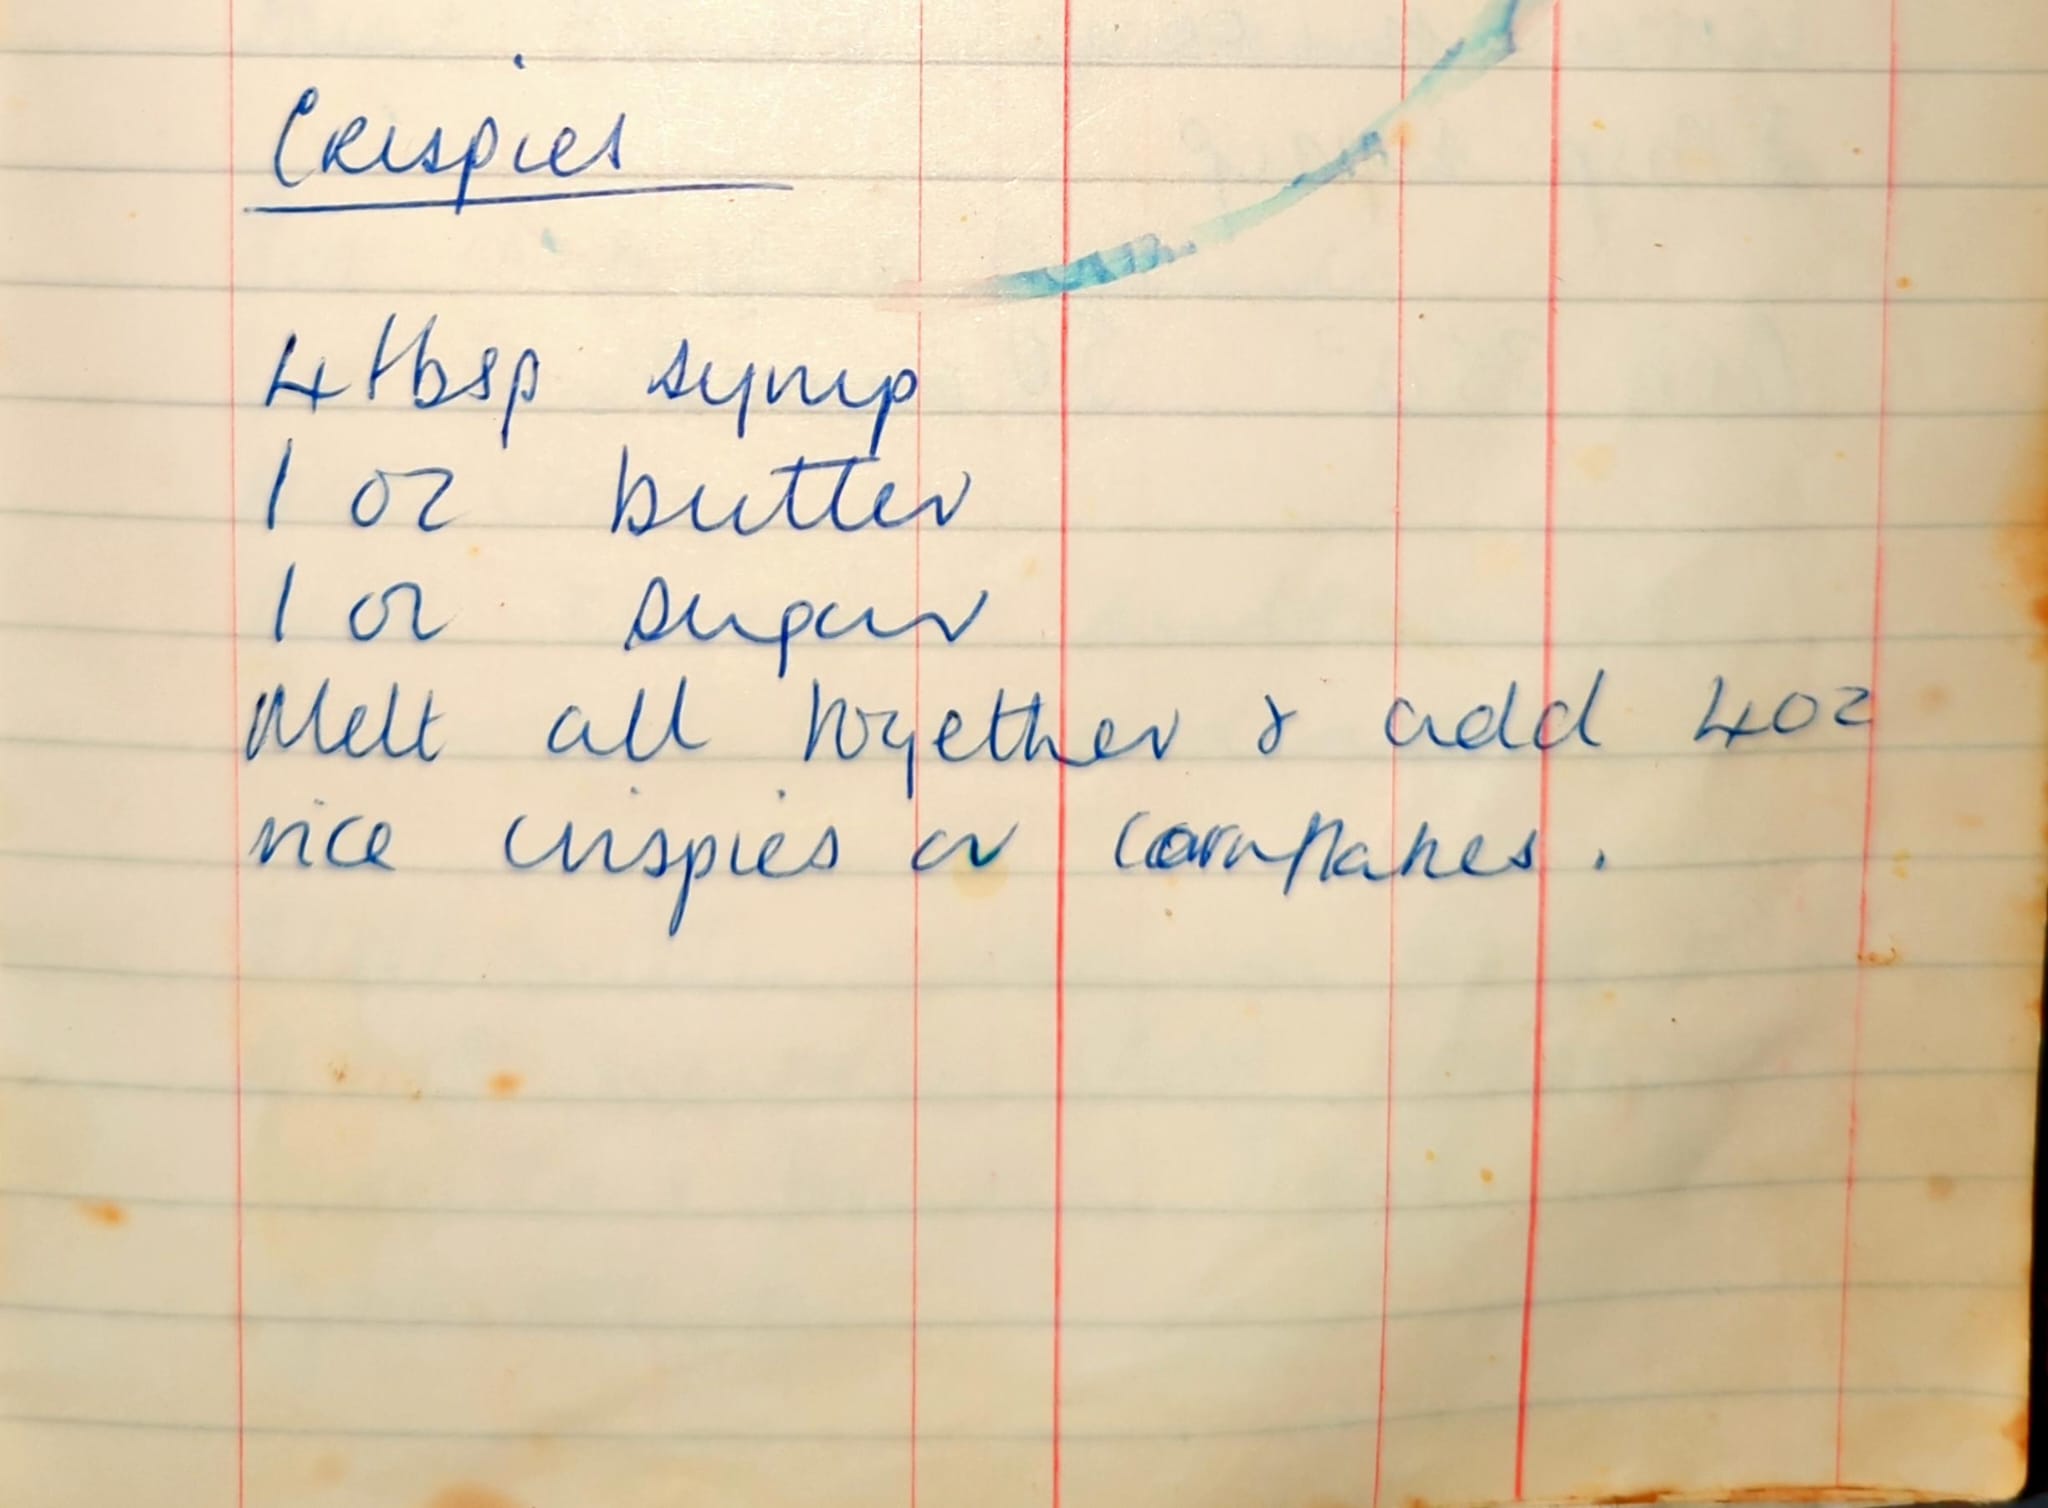 Crispies
4 tbsp syrup
1 oz butter
1 oz sugar
Melt all together & add 4oz
rice crispies or cornflakes.